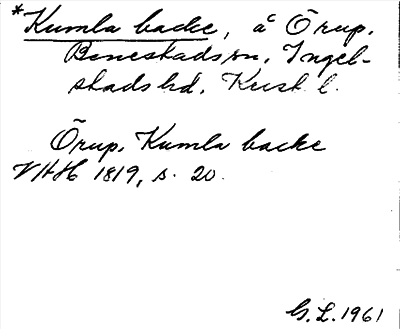 *Kumla backe, å Örup.
Benestads sn. Ingel-
stads hd. Krist. l.
Örup. Kumla backe
VHH 1819, s. 20.
G. L. 1961